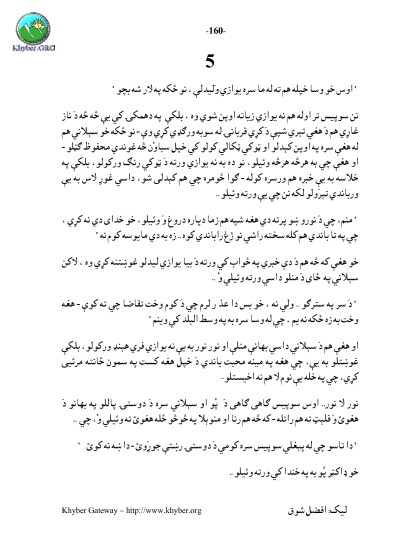 Khyber.ORG
-160-
5
" اوس خو وسا خپله هم ته له ما سره يوازې وليدلې ، نو څکه په لار شه بچو "
تن سوپيس تر اوله هم نه يوازې زياته اوپن شوې وه ، بلکې په دهمکۍ کې يې څه څه دَ ناز
غاړې هم دَ هغې تيرې شپې دَ کړې قربانۍ له سوبه ورګډې کړې وې - نو څکه خو سبلانې هم
له هغې سره په اوپن کېدلو او ټوکې ټکالې کولو کې خپل ساؤن څه غوندې محفوظ ګڼلو -
او هغې چې به هرڅه هرڅه وئيلو ، نو ده به نه يوازې ورته دَ ټوکې رنګ ورکولو ، بلکې په
خلاصه به يې خبره هم ورسره کوله - ګوا څومره چې هم کېدلی شو ، داسې غوږ لاس به يې
ورباندې تېرولو لکه نن چې يې ورته وئيلو ..
" منم، چې دَ نورو ښو پرته دې هغه شپه هم زما دپاره دروغ وَ وئيلو ، خو خدای دې نه کړې ،
چې په تا باندې هم کله سخته راشي نو ژغ راباندې کوه .. زه به دې مايوسه کوم نه "
خو هغې که څه هم دَ دې خبرې په ځواب کې ورته دَ بيا يوازې ليدلو غوښتنه کړې وه ، لاکن
سبلانې په ځای دَ منلو داسې ورته وئيلي وُ ..
" دَ سر په سترګو .. ولې نه ، خو بس دا عذر لرم چې دَ کوم وخت تقاضا چې ته کوې - هغه
وخت به زه څکه نه يم ، چې له وسا سره به په وسط البلد کې وينم "
او هغې هم دَ سبلانې داسې بهانې منلې او نور نور به يې نه يوازې فري هېنډ ورکولو ، بلکې
غوښتلو به يې، چې هغه په مينه محبت باندې دَ خپل هغه کست په سمون ځانته مرئيی
کړي، چې په خله يې نوم لا هم نه اخيستلو -
نور لا نور.. اوس سوپيس ګاهی ګاهی دَ پُو او سبلانې سره دَ دوستۍ پاللو په بهانو دَ
هغوئ وَ فلېټ ته هم راتله - که څه هم رنا او منو بلا په څو څو ځله هغوئ ته وئيلي وُ، چې ..
" دا تاسو چې له پېغلې سوپيس سره کومې دَ دوستۍ رښتې جوړوئ - دا ښه نه کوئ "
خو ډاکټر پُو به په خندا کې ورته وئيلو ..
Khyber Gateway – http://www.khyber.org
ليک: افضل شوق